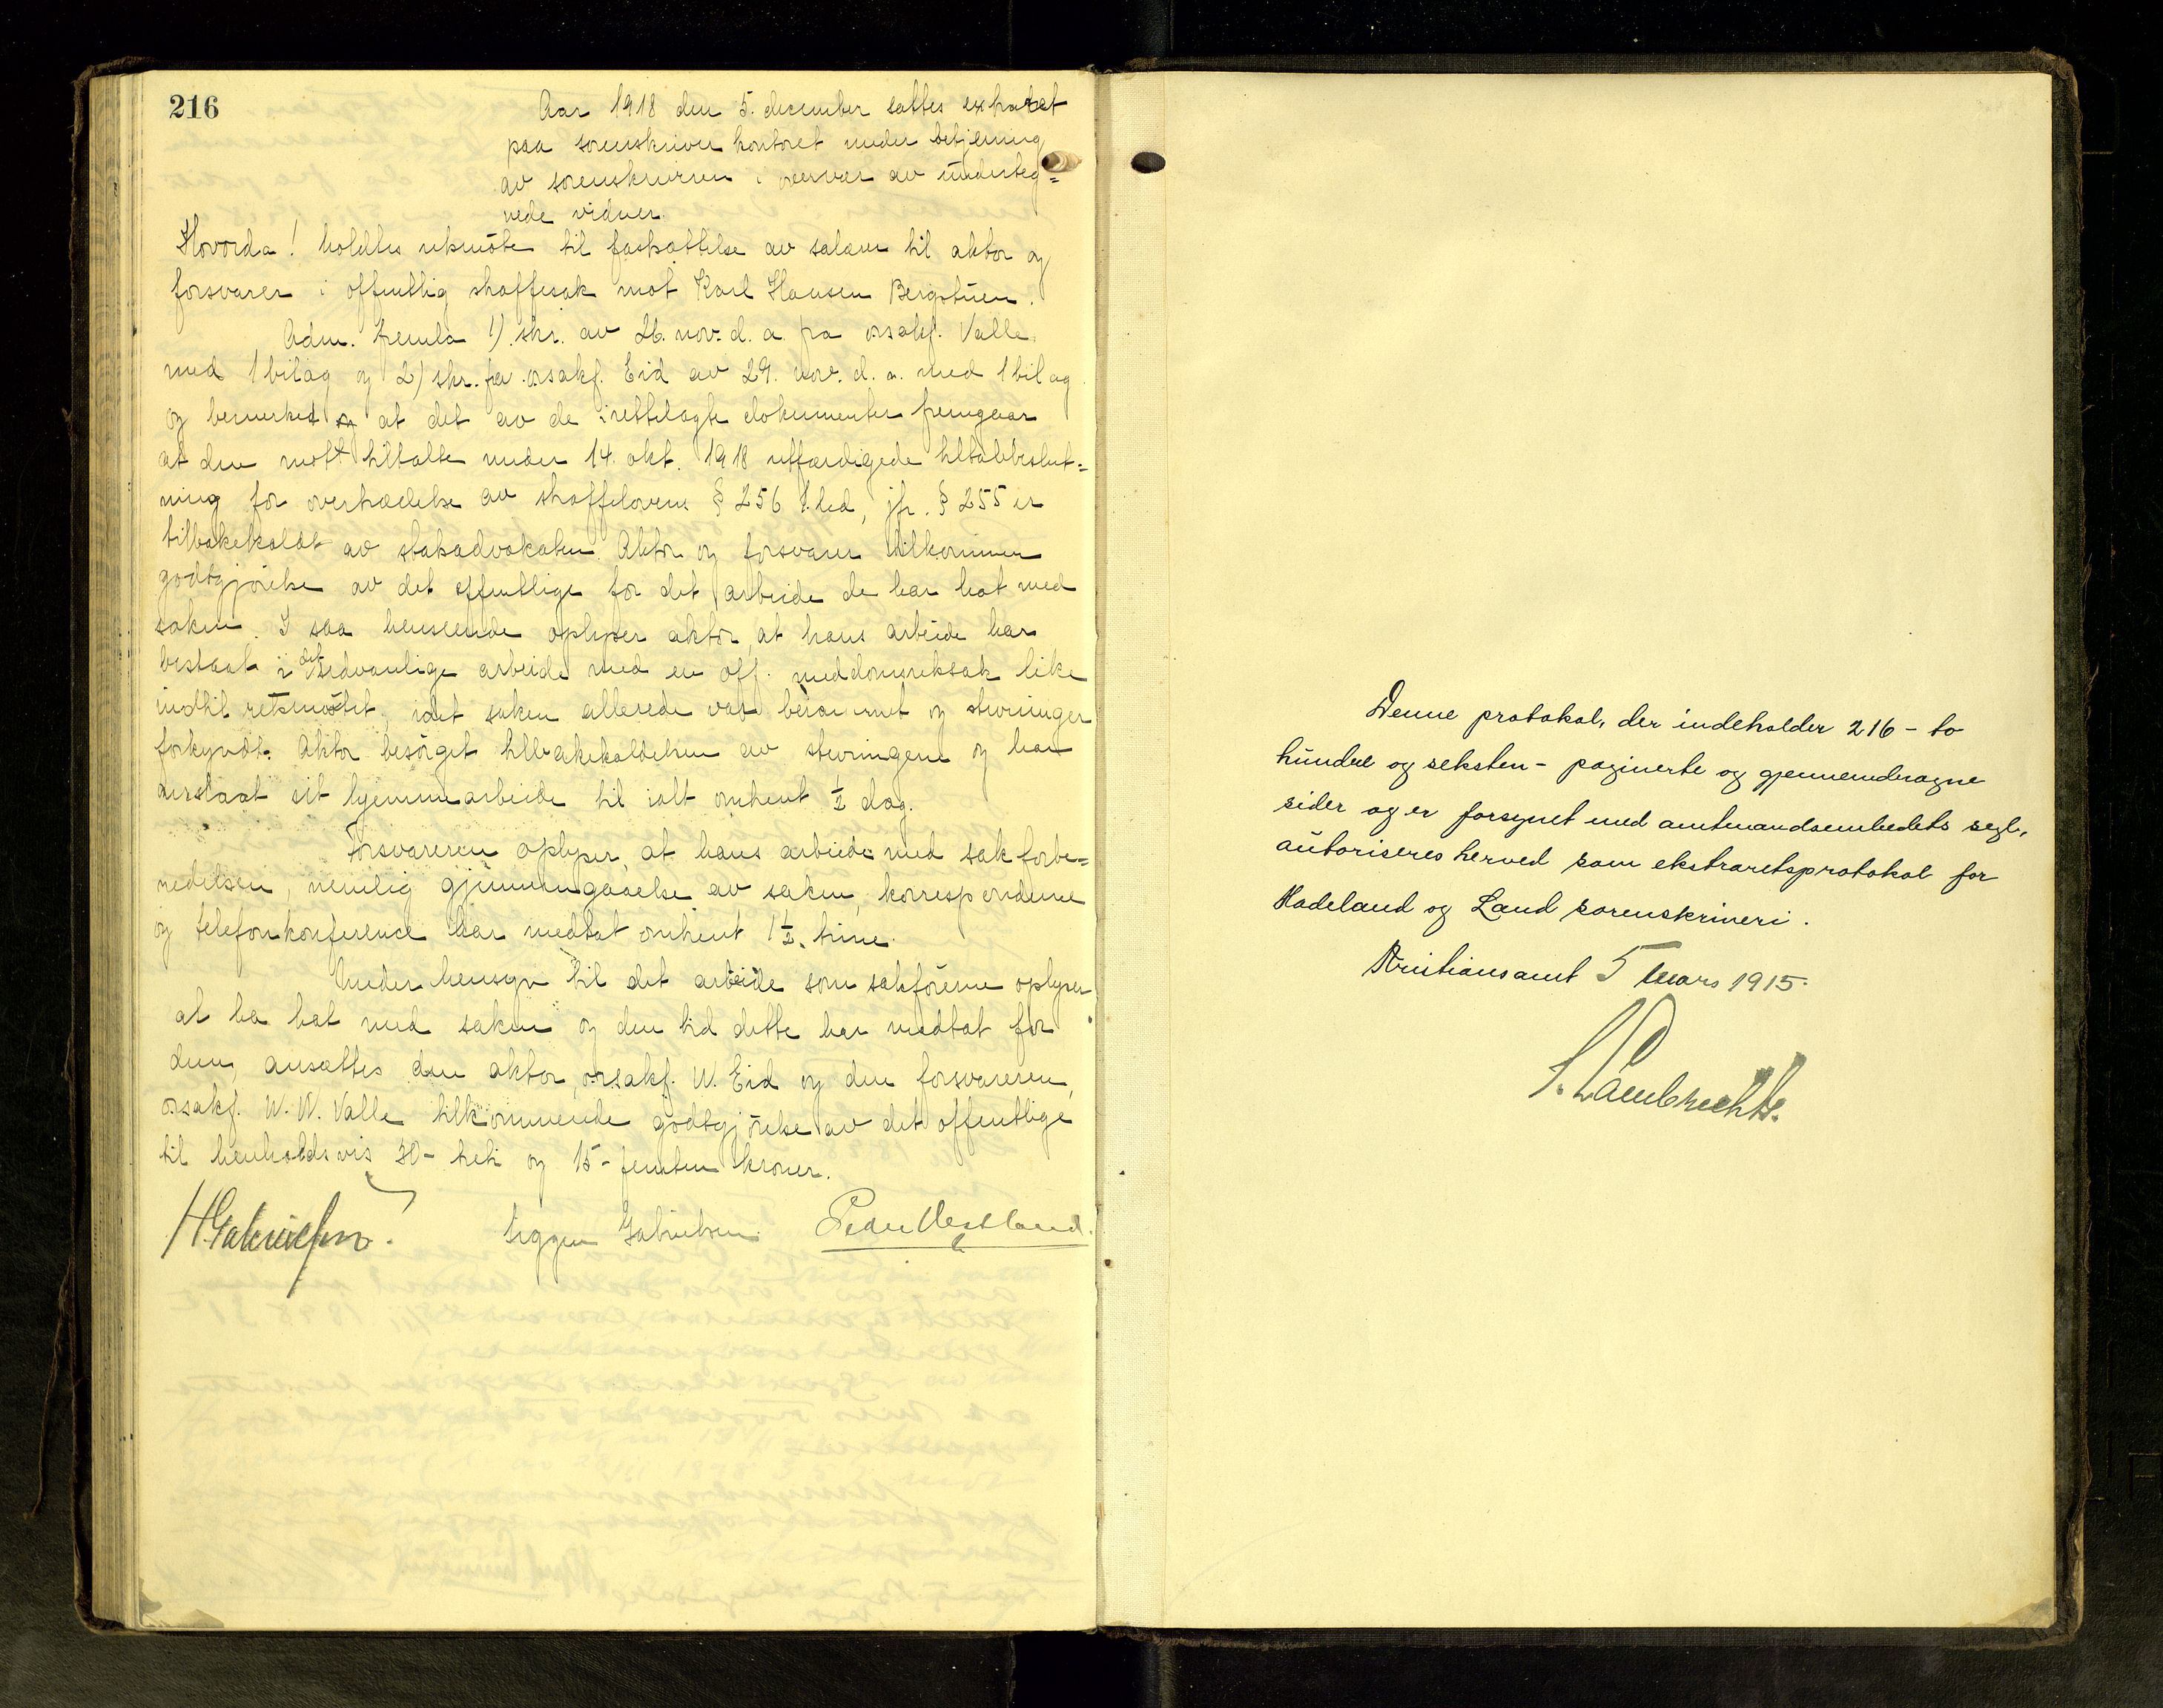 216
Aar 1918 den 5. december sattes extraret
paa sorenskriverkontoret under betjening
av sorenskriveren i overvær av underteg=
nede vidner.
Hvorda! holdtes retsmöte til fastsættelse av salær til aktor og
forsvarer i offentlig straffesak mot Karl Hansen Bergstuen.
Adm. fremla 1) skr. av 26. nov. d. a. fra orsakf. Valle
med 1 bilag og 2) skr. fra orsakf. Eid av 29. nov. d. a. med 1 bilag
og bemerket at det av de i rettelagte dokumenter fremgaar
at den mott tiltalte under 14. okt. 1918 utfærdigede tiltalebeslut=
ning for overtrædelse av straffelovens § 256 1. led, jfr. § 255 er
tilbakekaldt av statsadvokaten. Aktor og forsvarer tilkommer
godtgjörelse av det offentlige for det arbeide de har hat med
saken. I saa henseende oplyser aktor, at hans arbeide har
bestaat i det sedvanlige arbeide med en off. meddomsretssak like
indtil retsmötet, idet saken allerede var berammet og stevninger
forkyndt. Aktor besörget tilbakekaldelsen av stevningene og har
anslaat sit hjemmearbeide til ialt omtrent ½ dag.
Forsvareren oplyser, at hans arbeide med sak forbe=
redelsen, nemlig gjennemgaaelse av saken, korrespondanse
og telefonkonference har medtat omtrent 1½ time.
Under hensyn til det arbeide som sakförerne oplyser
at ha hat med saken og den tid dette har medtat for
dem, ansættes den aktor, orsakf. W. Eid og den forsvareren,
orsakf. W. W. Valle tilkommende godtgjörelse av det offentlige
til henholdsvis 30 - treti og 15 - femten kroner.
H Gabrielsen. Sigges Gabrielsen. Peder Vestland.
Denne protokol, der indeholder 216 - to
hundre og seksten - paginerte og gjennemdragne
sider og er forsynet med amtmandsembedets segl,
autoriseres herved som ekstraretsprotokol for
Hadeland og Land sorenskriveri.
Kristians amt 5 mars 1915.
S. Lambrechts.